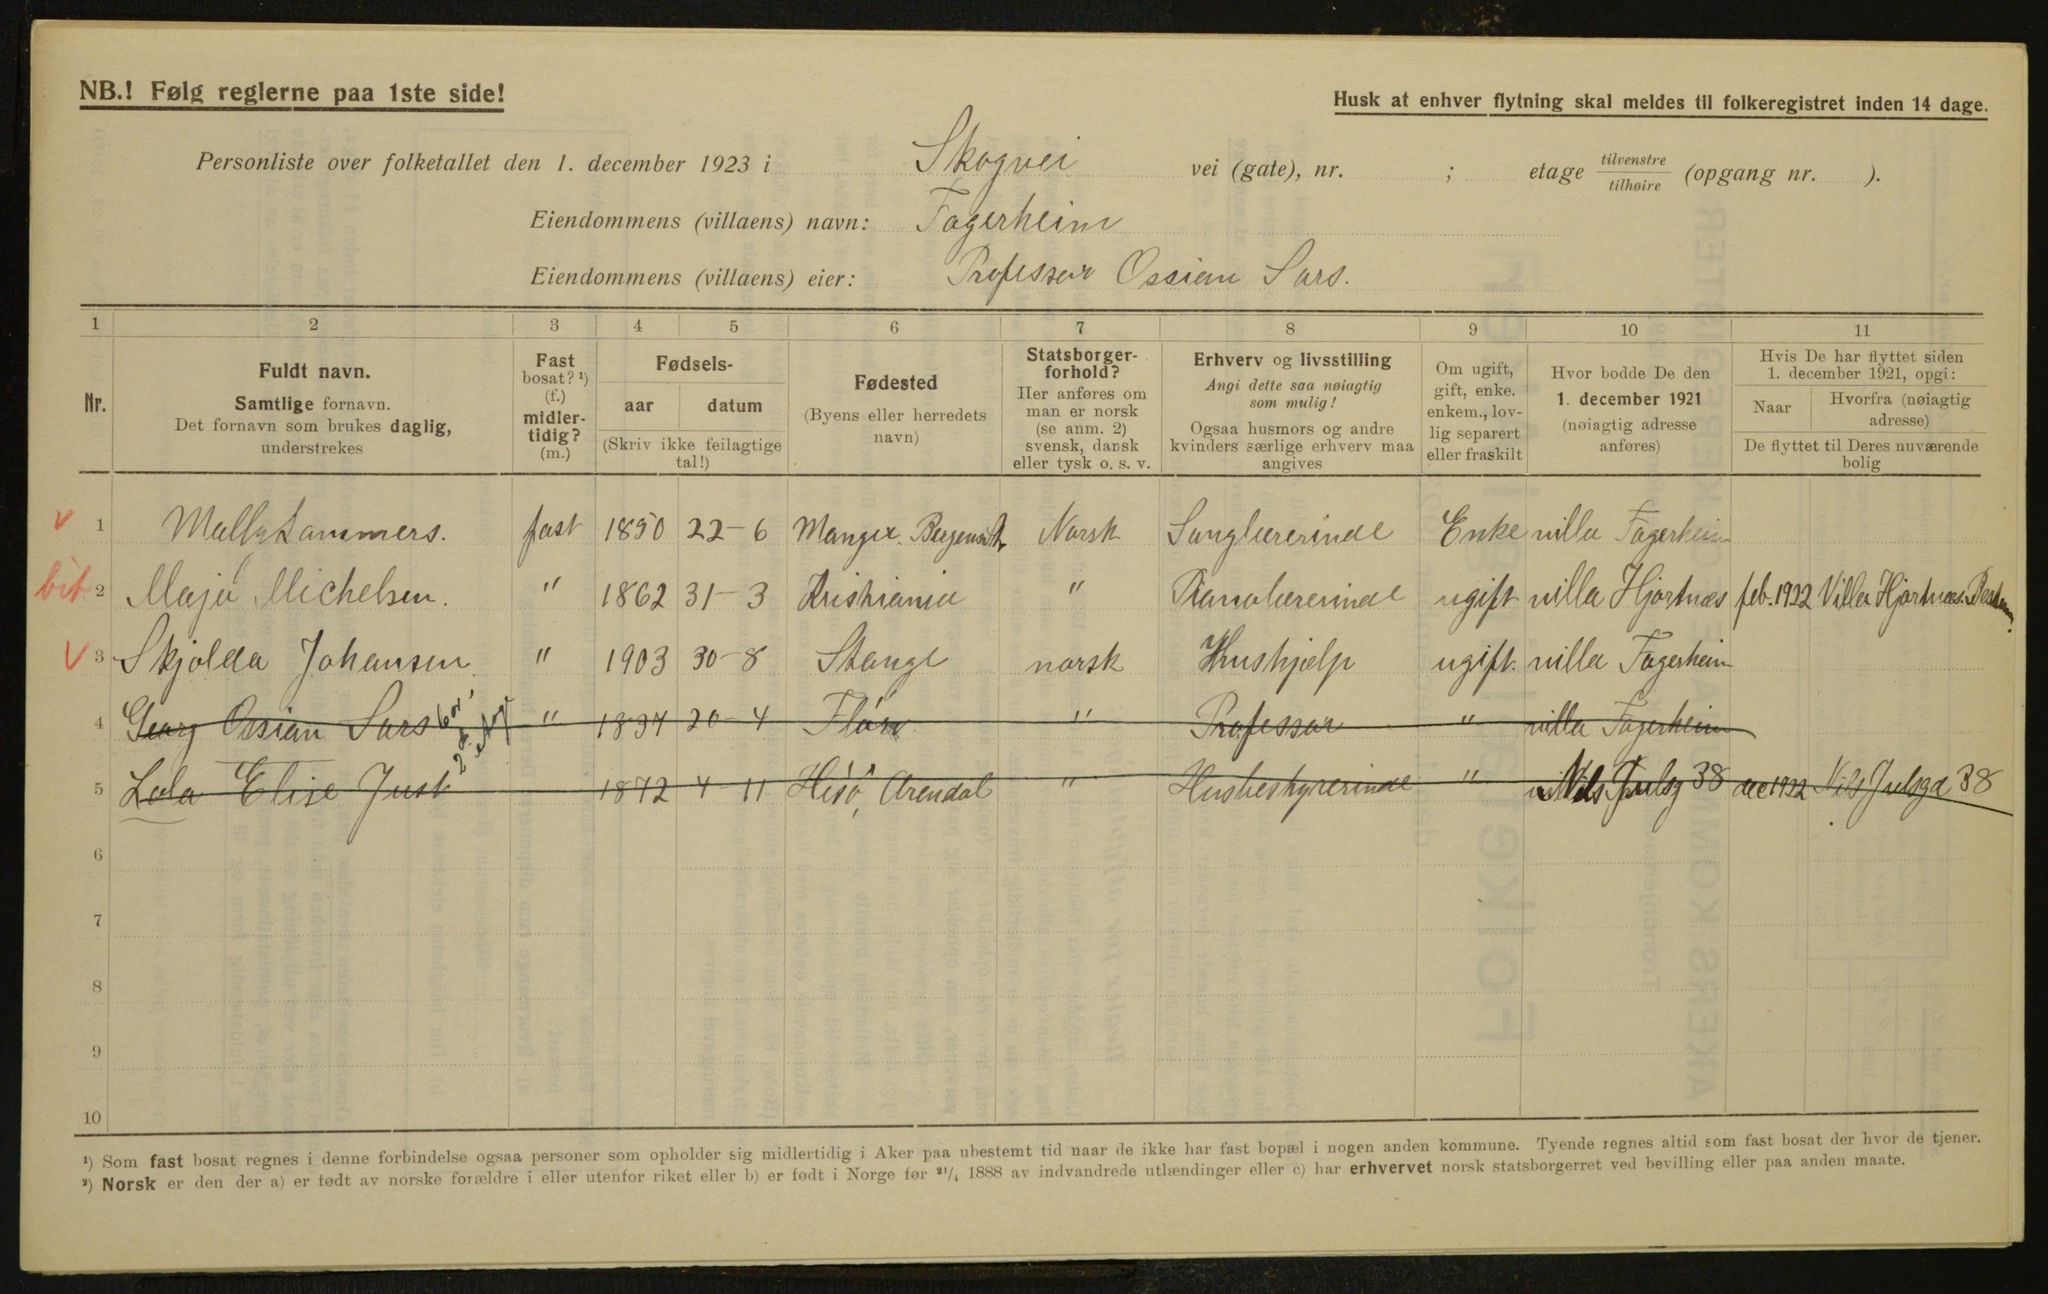 NB.! Følg reglerne paa 1ste side!
Husk at enhver flytning skal meldes til folkeregistret inden 14 dage.
Personliste over folketallet den 1. december 1923 i Skogvei vei (gate), nr. ; etage tilvenstre tilhøire (opgang nr. ).
Eiendommens (villaens) navn: Fagerheim
Eiendommens (villaens) eier: Professor Ossian Sars.
1 2 3 4 5 6 7 8 9 10 11
Nr.
Fuldt navn.
Samtlige fornavn.
Det fornavn som brukes daglig,
understrekes
Fast
bosat? ¹)
(f.)
midler-
tidig?
(m.)
Fødsels-
aar datum
(Skriv ikke feilagtige
tal!)
Fødested
(Byens eller herredets
navn)
Statsborger-
forhold?
Her anføres om
man er norsk
(se anm. 2)
svensk, dansk
eller tysk o. s. v.
Erhverv og livsstilling
Angi dette saa nøiagtig
som mulig!
Ogsaa husmors og andre
kvinders særlige erhverv maa
angives
Om ugift,
gift, enke.
enkem., lov-
lig separert
eller fraskilt
Hvor bodde De den
1. december 1921
(nøiagtig adresse
anføres)
Hvis De har flyttet siden
1. december 1921, opgi:
Naar
Hvorfra (nøiagtig
adresse)
De flyttet til Deres nuværende
bolig
v 1 Mally Lammers. fast 1850 22-6 Manger. Norsk Sanglærerinde Enke villa Fagerheim
2 Maja Michelsen. " 1862 31-3 Kristiania " Pianolærerinde ugift villa Hjortnæs feb. 1922 Villa Hjortnæs.
v 3 Skjolda Johansen " 1903 30-8 Stange norsk Hushjælp ugift. villa Fagerheim
4 Georg Ossian Sars " 20-4 Florø " Professor " villa Fagerheim
5 Lola Elise Just 1872 4-11 Hisö, Arendal " Husbestyrerinde " Nils Julsg 38 dec 1922 Nils Julsgd 38
6
7
8
9
10
¹) Som fast bosat regnes i denne forbindelse ogsaa personer som opholder sig midlertidig i Aker paa ubestemt tid naar de ikke har fast bopæl i nogen anden kommune. Tyende regnes altid som fast bosat der hvor de tjener.
²) Norsk er den der a) er født av norske forældre i eller utenfor riket eller b) er født i Norge før ²¹/₄ 1888 av indvandrede utlændinger eller c) har erhvervet norsk statsborgerret ved bevilling eller paa anden maate.